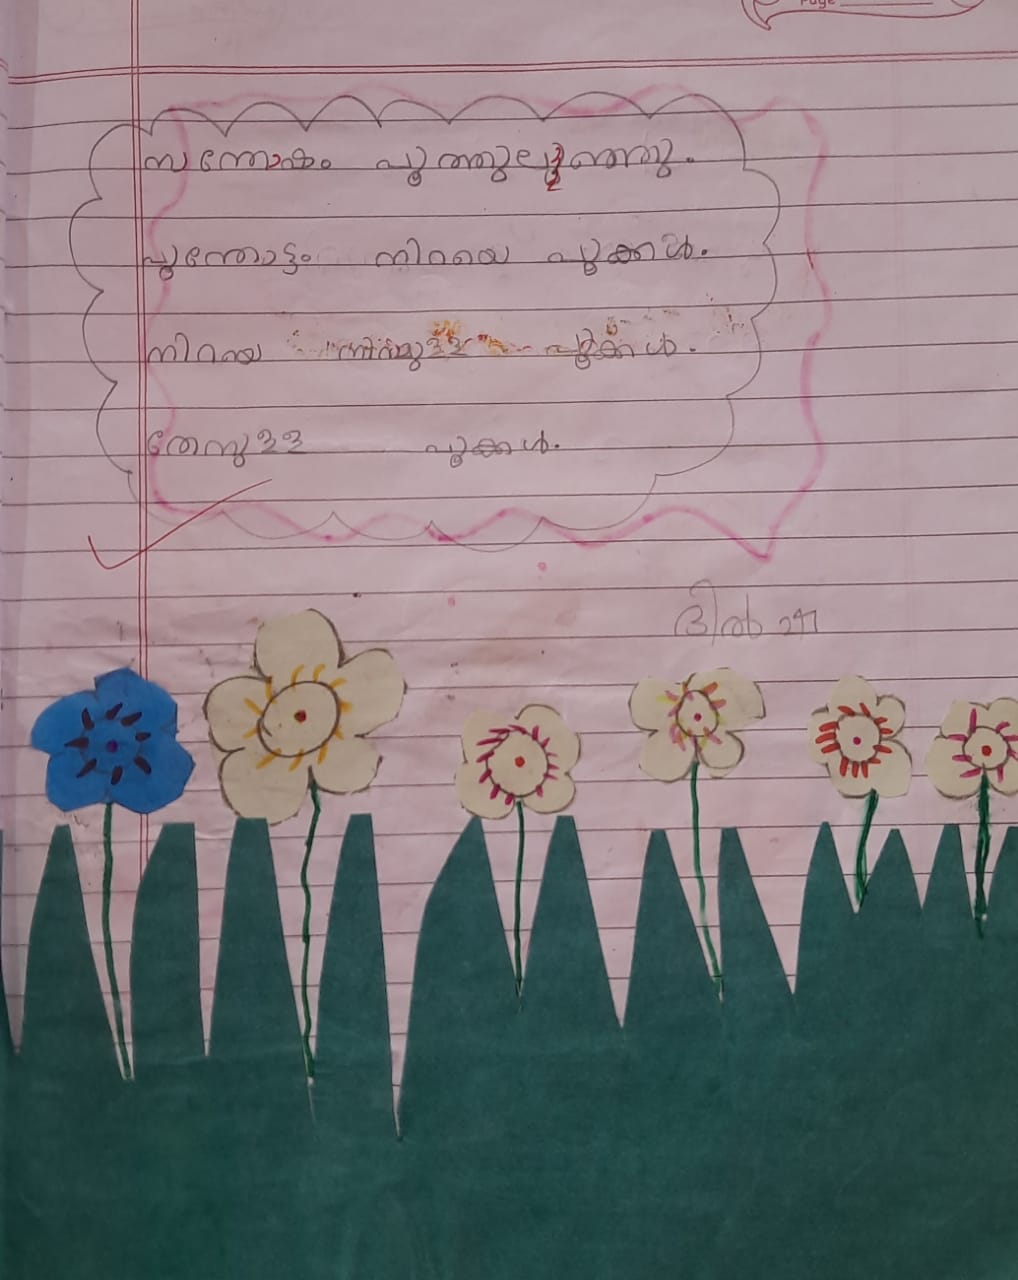 Page
സന്തോഷം പൂത്തുലഞ്ഞു.
പൂന്തോട്ടം നിറയെ പൂക്കൾ.
നിറയെ പൂക്കൾ.
തേനുള്ള പൂക്കൾ.